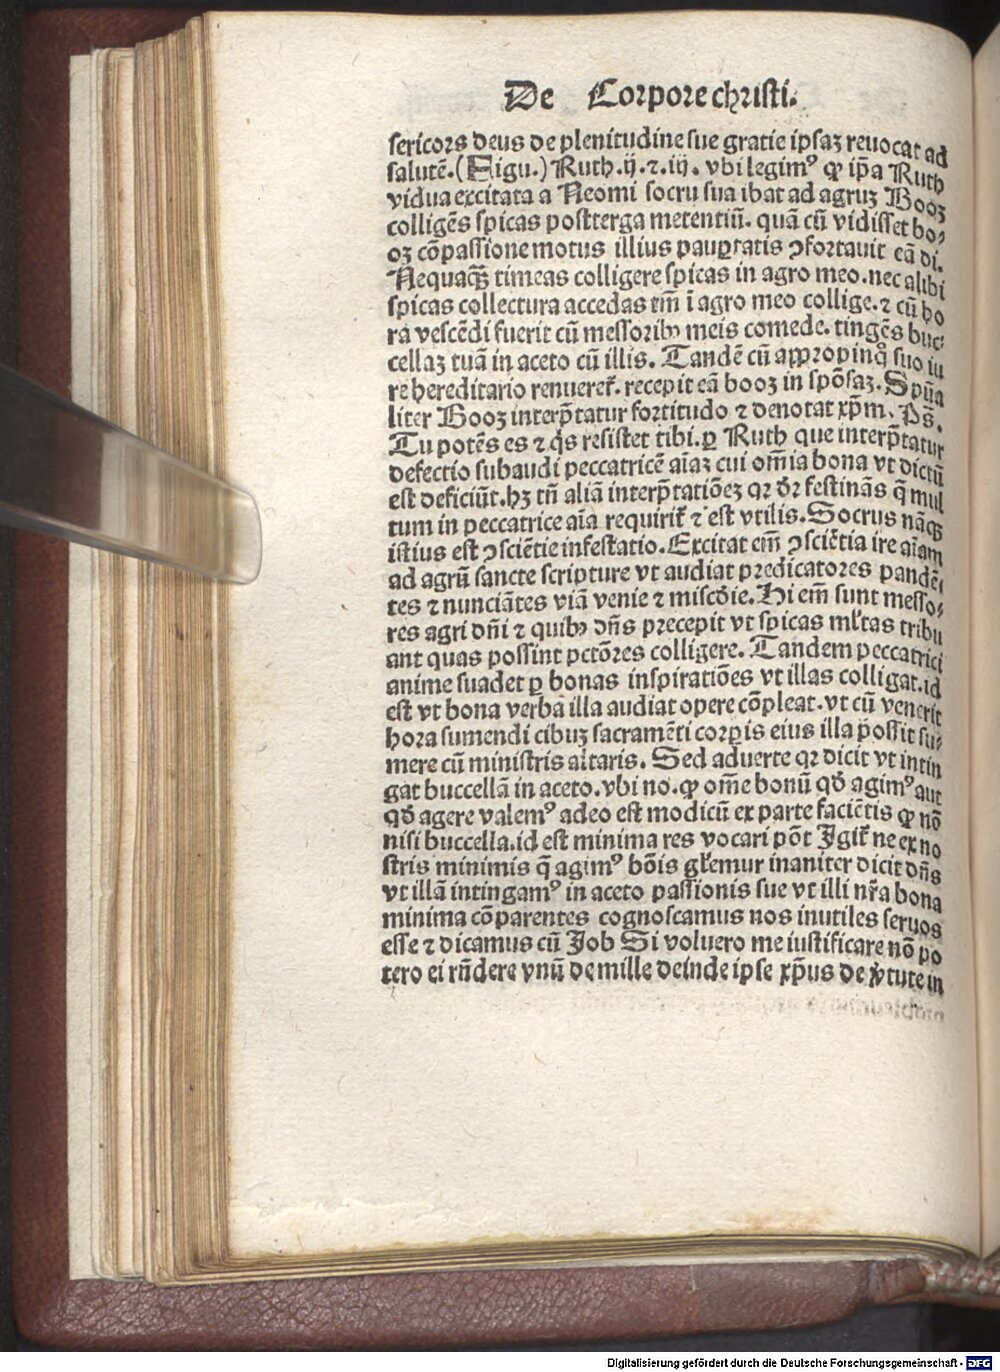 De Corpore christi.
sericors deus de plenitudine sue gratie ipsaꝫ reuocat ad
salutē.(Figu.) Ruth.ij.⁊.iij. vbi legimꝰ ꝙ ip̄a Ruth
vidua excitata a Neomi socru sua ibat ad agruꝫ Booz
colligēs spicas postterga metentiū. quā cū vidisset bo⸗
oz cōpassione motus illius pauꝑtatis ꝯfortauit eā di.
Nequaꝙ̄ timeas colligere spicas in agro meo. nec alibi
spicas collectura accedas tm̄ ī agro meo collige.⁊ cū ho
ra vescēdi fuerit cū messoribꝫ meis comede. tingēs buc⸗
cellaꝫ tuā in aceto cū illis. Tandē cū appropinqͦ suo iu
re hereditario renueret̄. recepit eā booz in spōsaꝫ. Spūa
liter Booz interp̄tatur fortitudo ⁊ denotat xp̄m. Ps̄.
Tu potēs es ⁊ qͥs resistet tibi. ꝑ Ruth que interp̄tatur
defectio subaudi peccatricē aīaꝫ cui om̄ia bona vt dictū
est deficiūt. hꝫ tn̄ aliā interp̄tatiōeꝫ qꝛ dr̄ festināns q̄ mul
tum in peccatrice aīa requirit̄ ⁊ est vtilis. Socrus nāqꝫ
istius est ꝯsciētie infestatio. Excitat em̄ ꝯsciētia ire aīam
ad agrū sancte scripture vt audiat predicatores pandē⸗
tes ⁊ nunciātes viā venie ⁊ miscd̄ie. Hi em̄ sunt messo⸗
res agri dn̄i ⁊ quibꝫ dn̄s precepit vt spicas ml̄tas tribu
ant quas possint pctōres colligere. Tandem peccatrici
anime suadet ꝑ bonas inspiratiōes vt illas colligat. id
est vt bona verba illa audiat opere cōpleat. vt cū venerit
hora sumendi cibuꝫ sacramēti corꝑis eius illa possit su⸗
mere cū ministris altaris. Sed aduerte qꝛ dicit vt intin
gat buccellā in aceto. vbi no. ꝙ om̄e bonū qd̄ agimꝰ aut
qd̄ agere valemꝰ adeo est modicū ex parte faciētis ꝙ nō
nisi buccella. id est minima res vocari pōt Igit̄ ne ex no
stris minimis q̄ agimꝰ bōis gl̄emur inaniter dicit dn̄s
vt illā intingamꝰ in aceto passionis sue vt illi nr̄a bona
minima cōparentes cognoscamus nos inutiles seruos
esse ⁊ dicamus cū Job Si voluero me iustificare nō po
tero ei rn̄dere vnū de mille deinde ipse xp̄us de v̓tute in
Digitalisierung gefördert durch die Deutsche Forschungsgemeinschaft - DFG